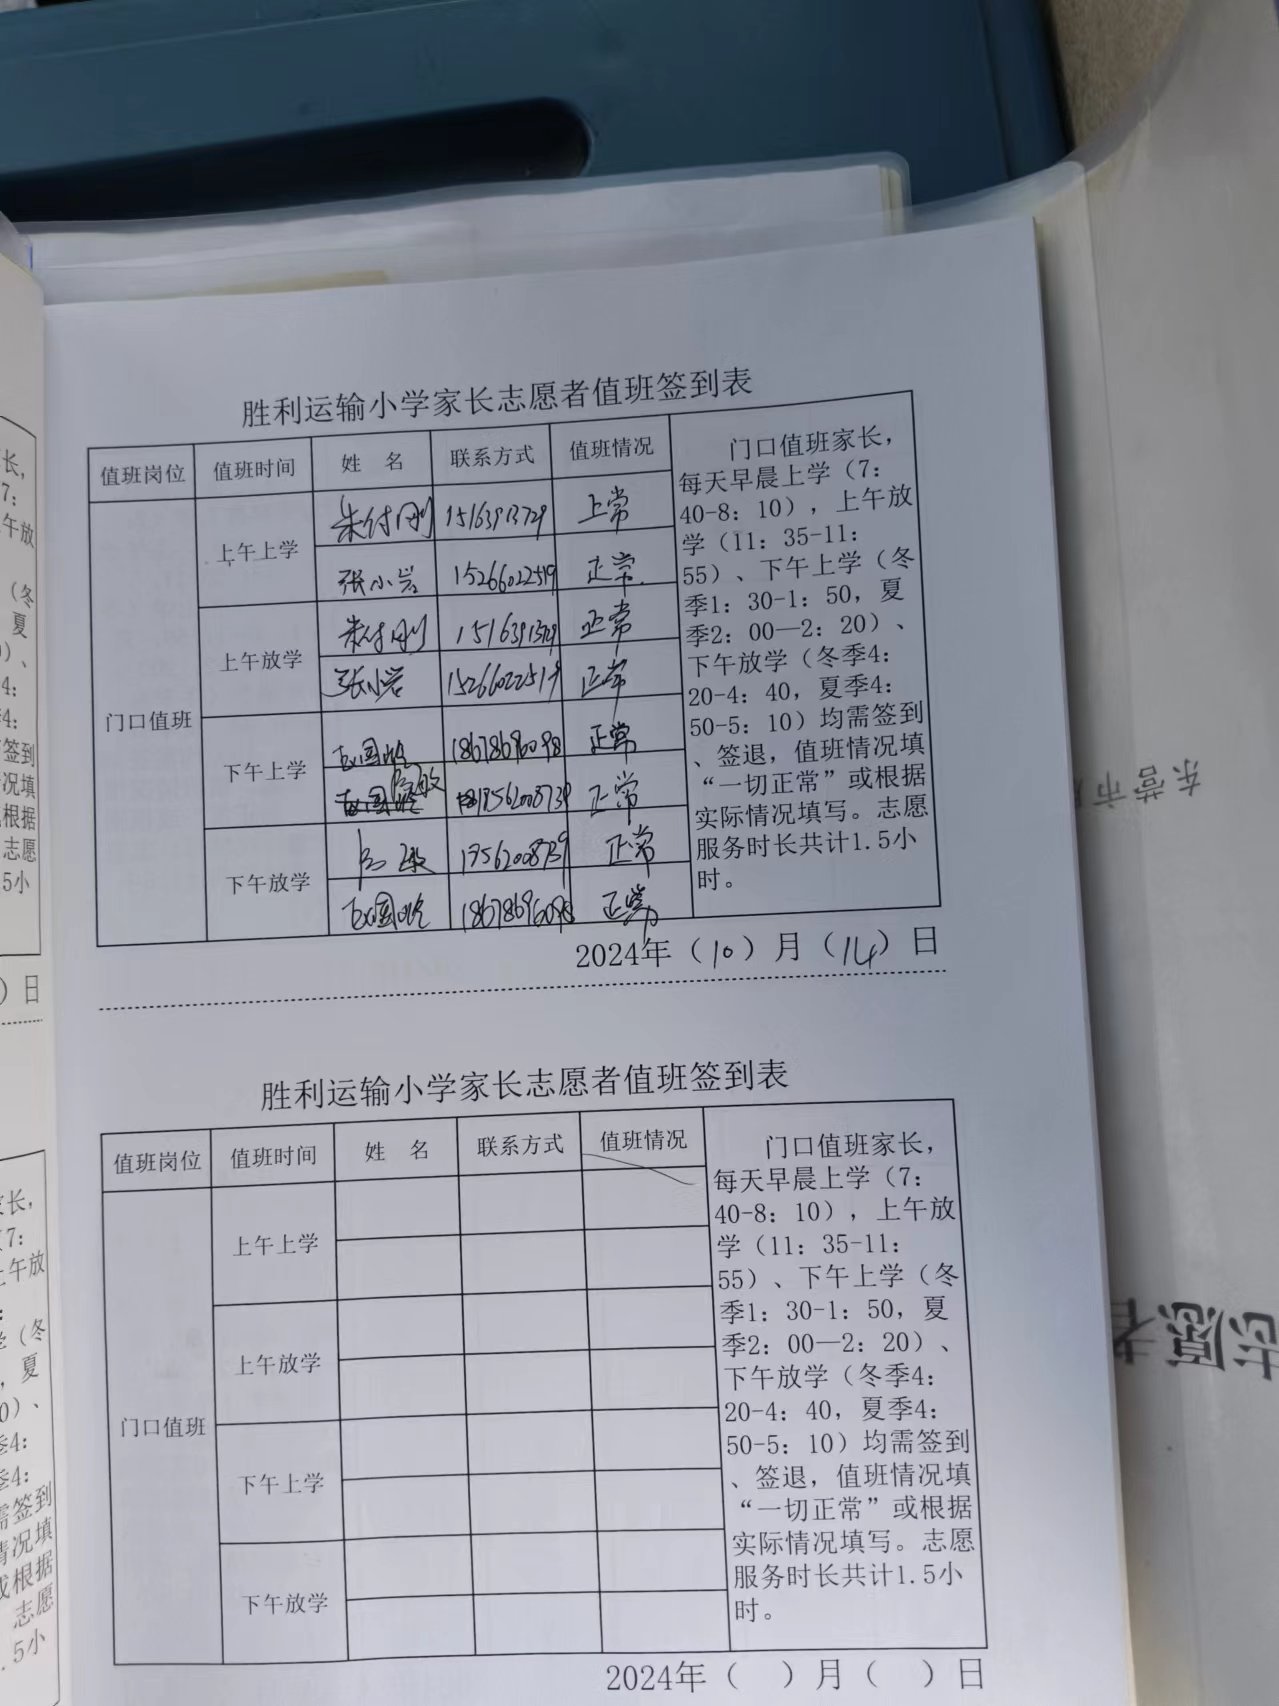 胜利运输小学家长志愿者值班签到表
值班岗位 值班时间 姓 名 联系方式 值班情况
门口值班
上午上学 朱付刚 15163913729 正常
张小岩 15266022519 正常
上午放学 朱付刚 15163913729 正常
张小岩 15266022519 正常
下午上学 18678696098 正常
正常
下午放学 17562008739 正常
18678696098 正常
门口值班家长，
每天早晨上学（7：
40-8：10），上午放
学（11：35-11：
55）、下午上学（冬
季1：30-1：50，夏
季2：00—2：20）、
下午放学（冬季4：
20-4：40，夏季4：
50-5：10）均需签到
、签退，值班情况填
“一切正常”或根据
实际情况填写。志愿
服务时长共计1.5小
时。
2024年（10）月（14）日
胜利运输小学家长志愿者值班签到表
值班岗位 值班时间 姓 名 联系方式 值班情况
门口值班
上午上学
上午放学
下午上学
下午放学
门口值班家长，
每天早晨上学（7：
40-8：10），上午放
学（11：35-11：
55）、下午上学（冬
季1：30-1：50，夏
季2：00—2：20）、
下午放学（冬季4：
20-4：40，夏季4：
50-5：10）均需签到
、签退，值班情况填
“一切正常”或根据
实际情况填写。志愿
服务时长共计1.5小
时。
2024年（ ）月（ ）日
东营市
志愿者